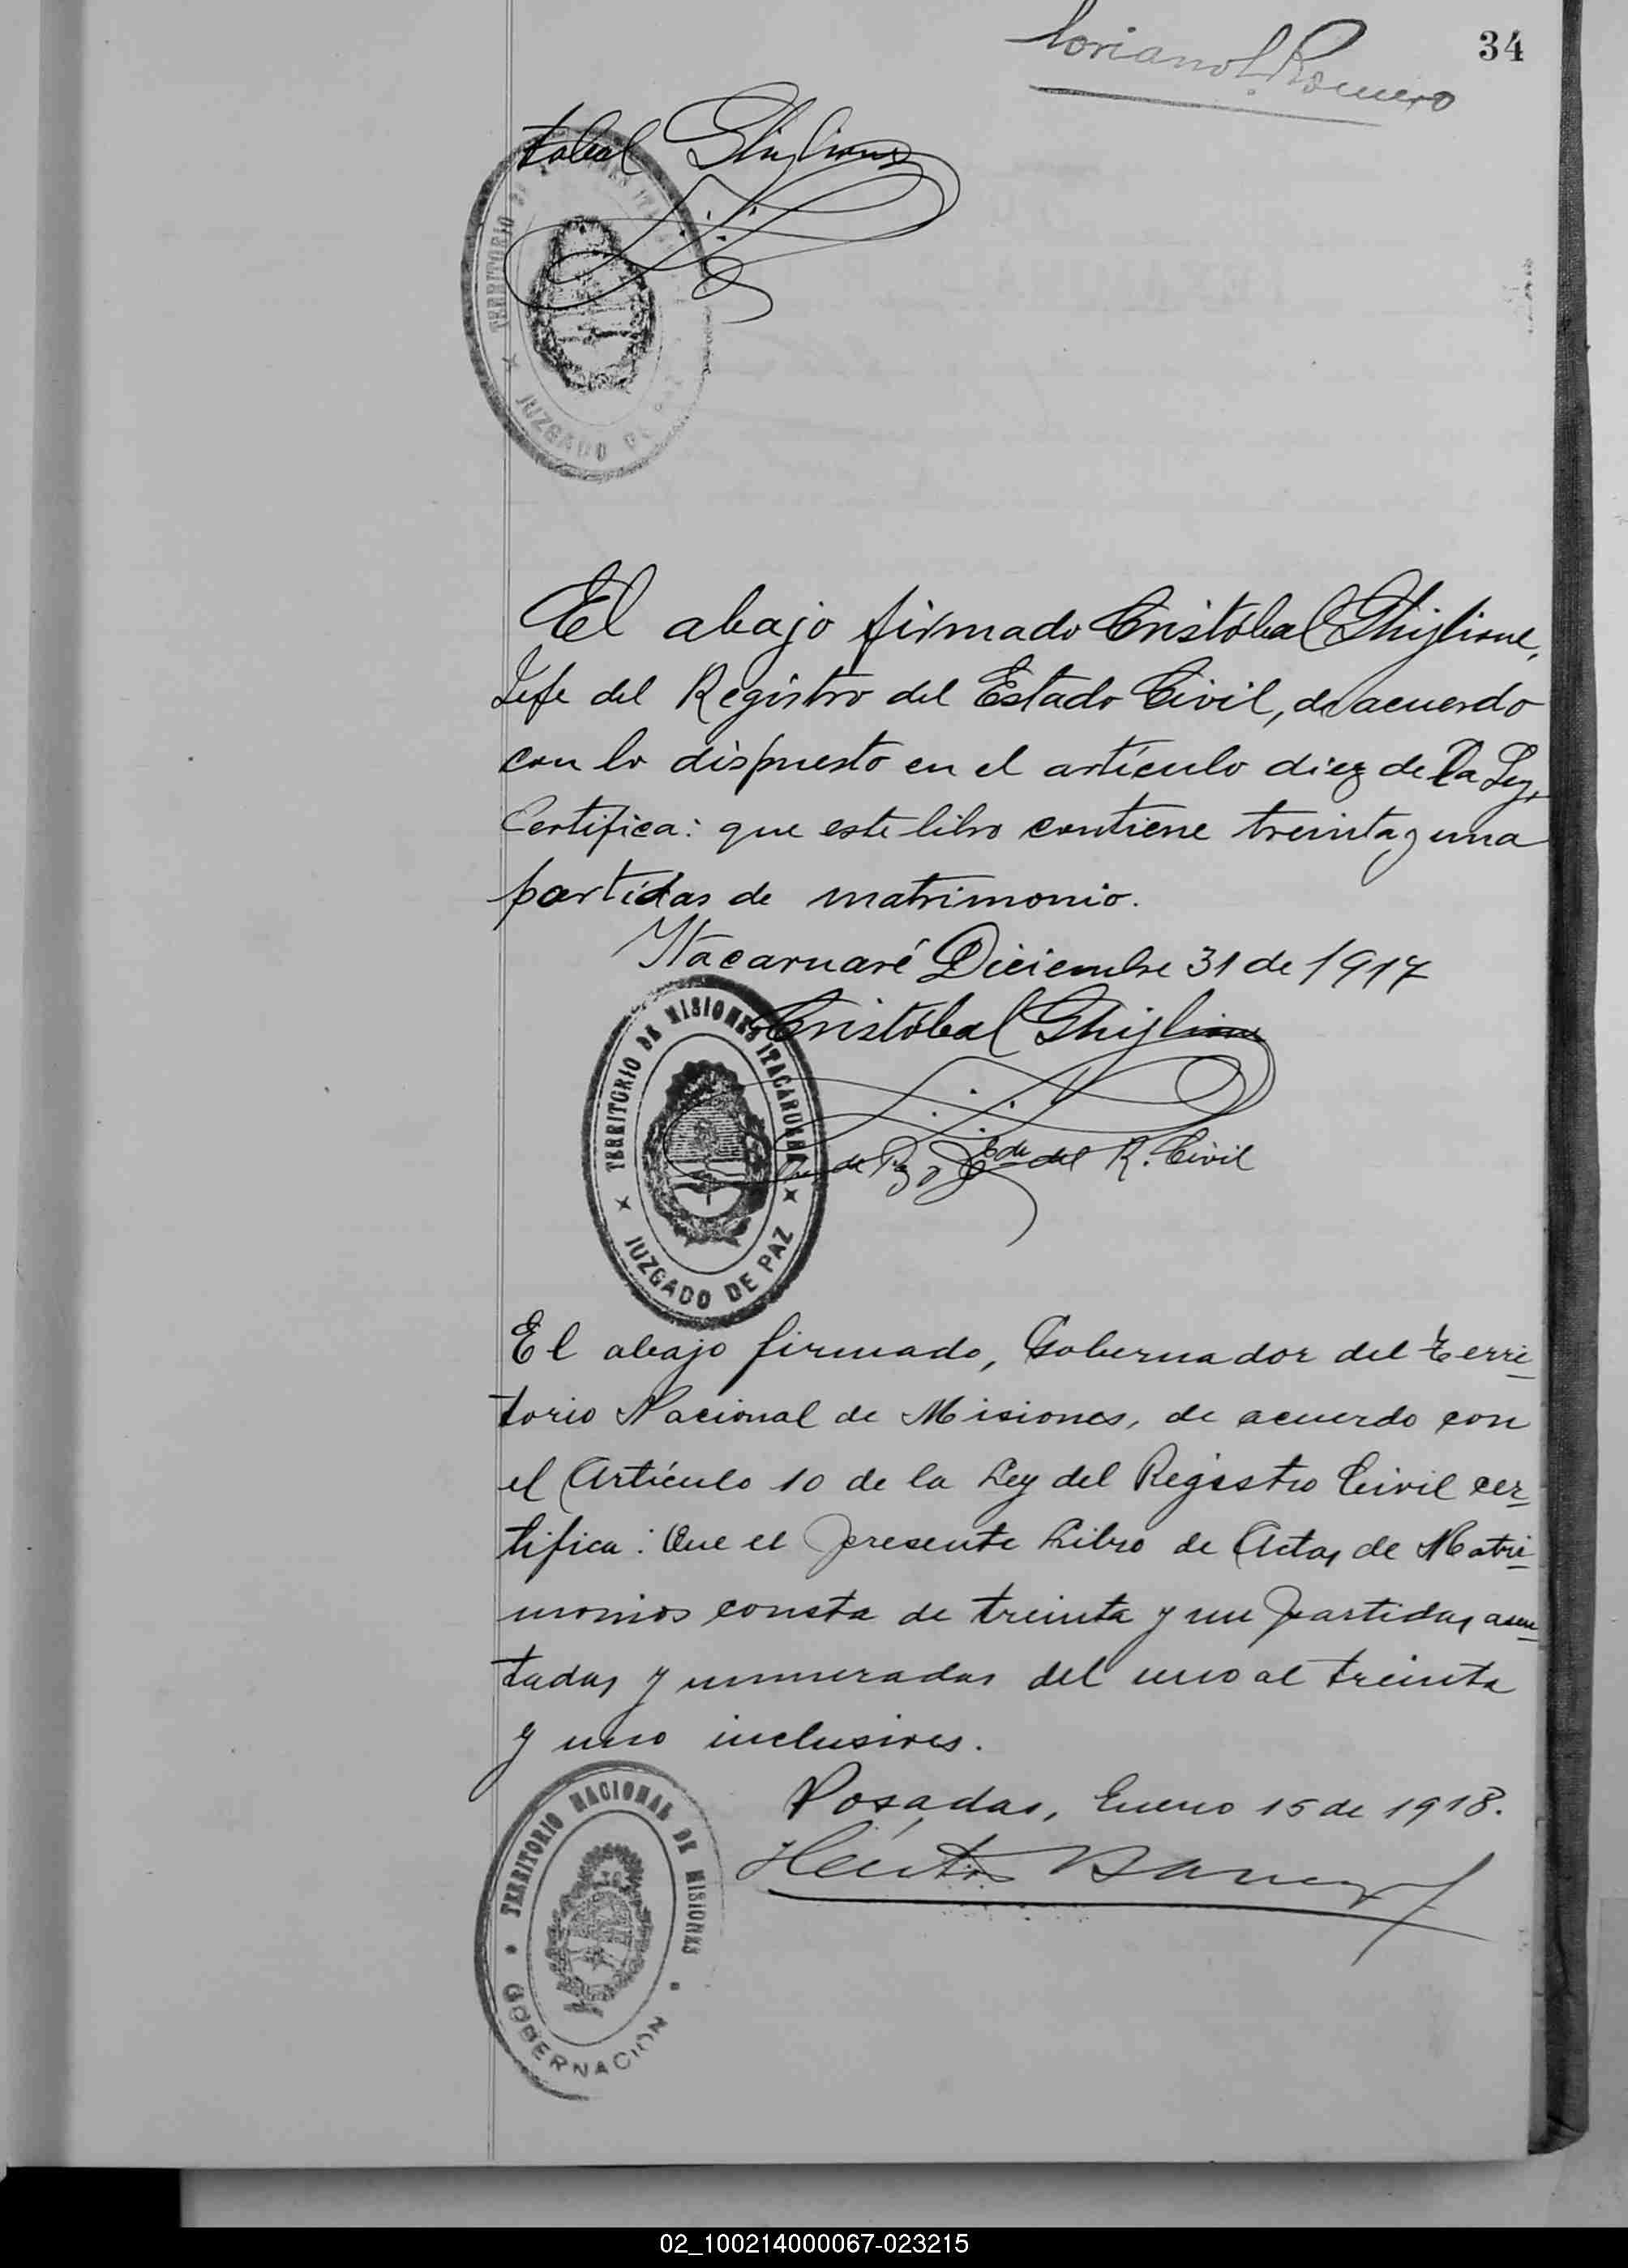 34
Loriano L. Romero
tobal Ghiglione
TERRITORIO DE MISIONES ITA
JUZGADO DE PAZ
El abajo firmado Cristóbal Ghiglione,
Jefe del Registro del Estado Civil, de acuerdo
con lo dispuesto en el artículo diez de la Ley,
Certifica: que este libro contiene treinta y una
partidas de matrimonio.
Itacaruaré Diciembre 31 de 1917
Cristóbal Ghiglione
de Paz y del R. Civil
TERRITORIO DE MISIONES ITACARUARÉ
JUZGADO DE PAZ
El abajo firmado, Gobernador del Terri-
torio Nacional de Misiones, de acuerdo con
el Artículo 10 de la Ley del Registro Civil cer-
tifica: Que el presente Libro de Actas de Matri-
monios consta de treinta y un partidas asen-
tadas y numeradas del uno al treinta
y uno inclusives.
Posadas, Enero 15 de 1918.
Héctor
TERRITORIO NACIONAL DE MISIONES
GOBERNACIÓN
02_100214000067-023215